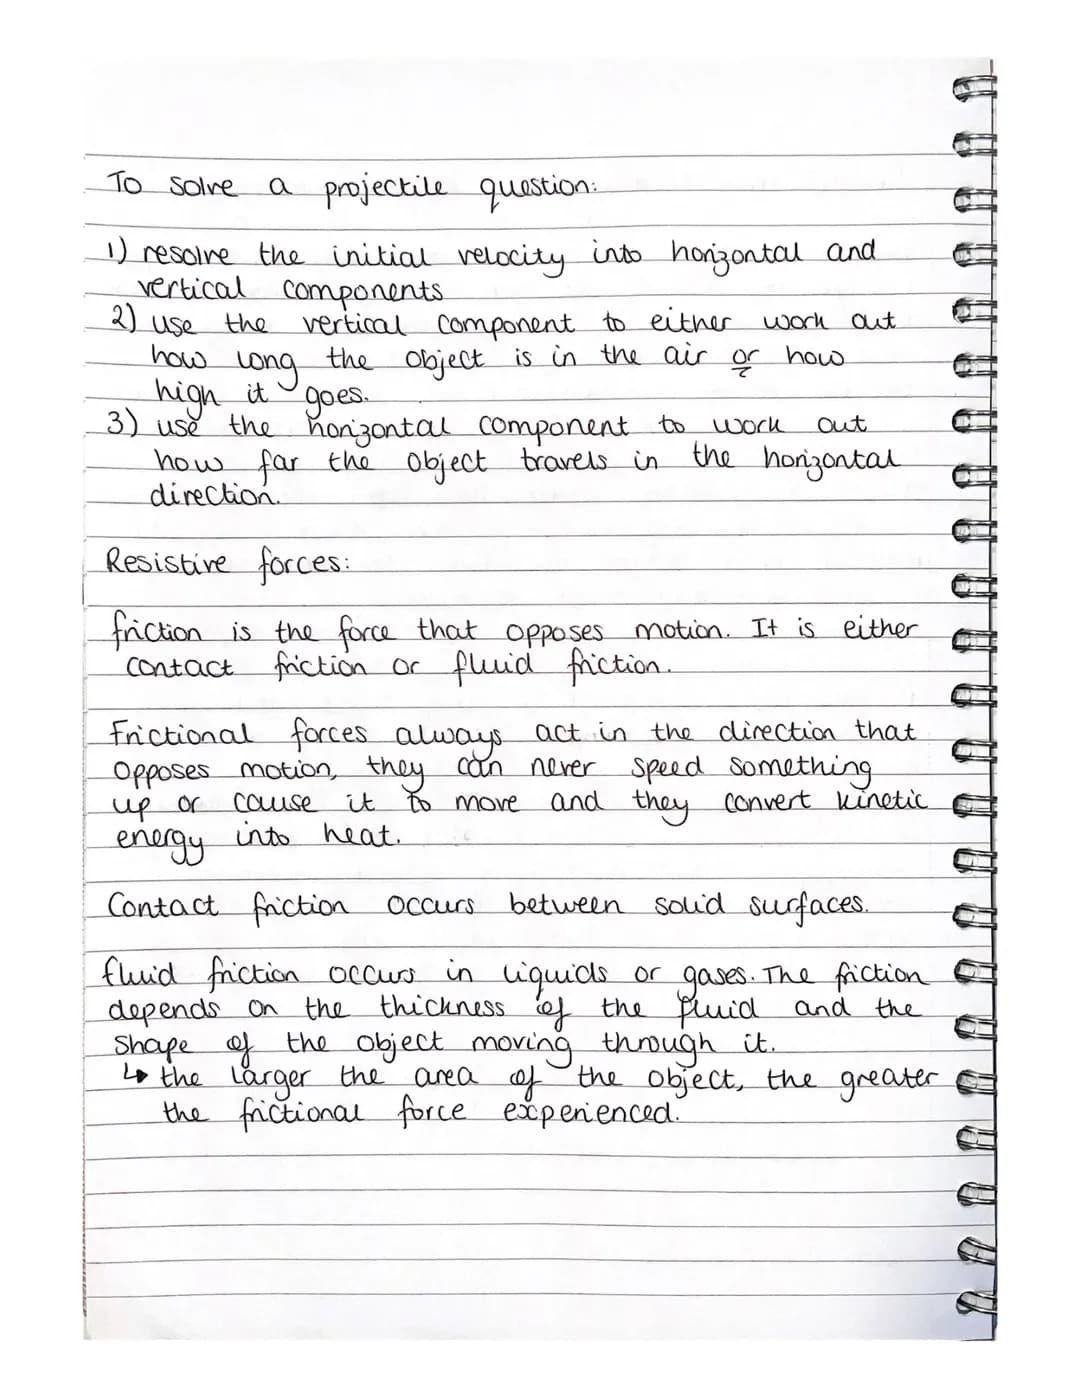 To solve a projectile question:
1) resolve the initial velocity into horizontal and
vertical components
2) use the vertical component to either work out
how long the object is in the air or how
high it goes.
3) use the horizontal component to work out
how far the object travels in the horizontal
direction.
Resistive forces:
friction is the force that opposes motion. It is either
contact friction or fluid friction.
Frictional forces always act in the direction that
opposes motion, they can never speed something
up or cause it to move and they convert kinetic
energy into heat.
Contact friction occurs between solid surfaces.
fluid friction occurs in liquids or gases. The friction
depends on the thickness of the fluid and the
shape of the object moving through it.
↳ the larger the area of the object, the greater
the frictional force experienced.